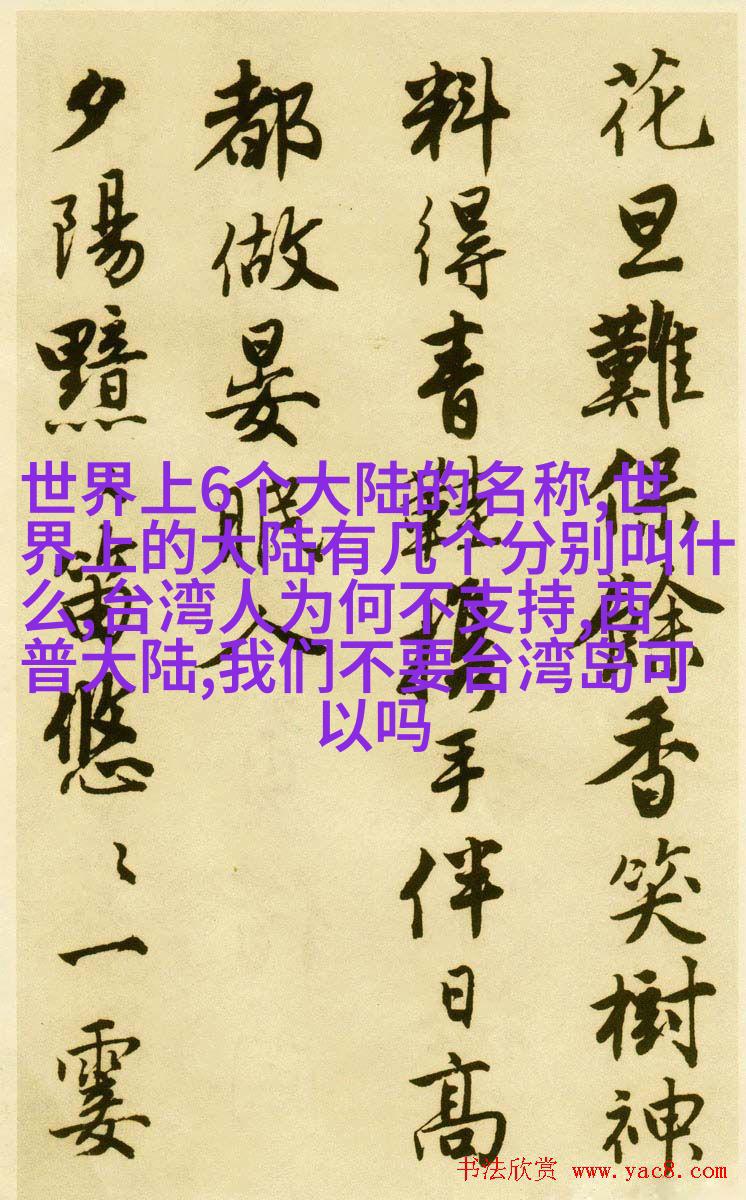 花旦難保餘香笑樹神
料得青鞋攜手伴日高
都做晏眠人
夕陽黯、笛悠〻一霎
世界上6个大陆的名称,世
界上的大陆有几个分别叫什
么,台湾人为何不支持,西
普大陆,我们不要台湾岛可
以吗
书法欣赏 www.yac8.com